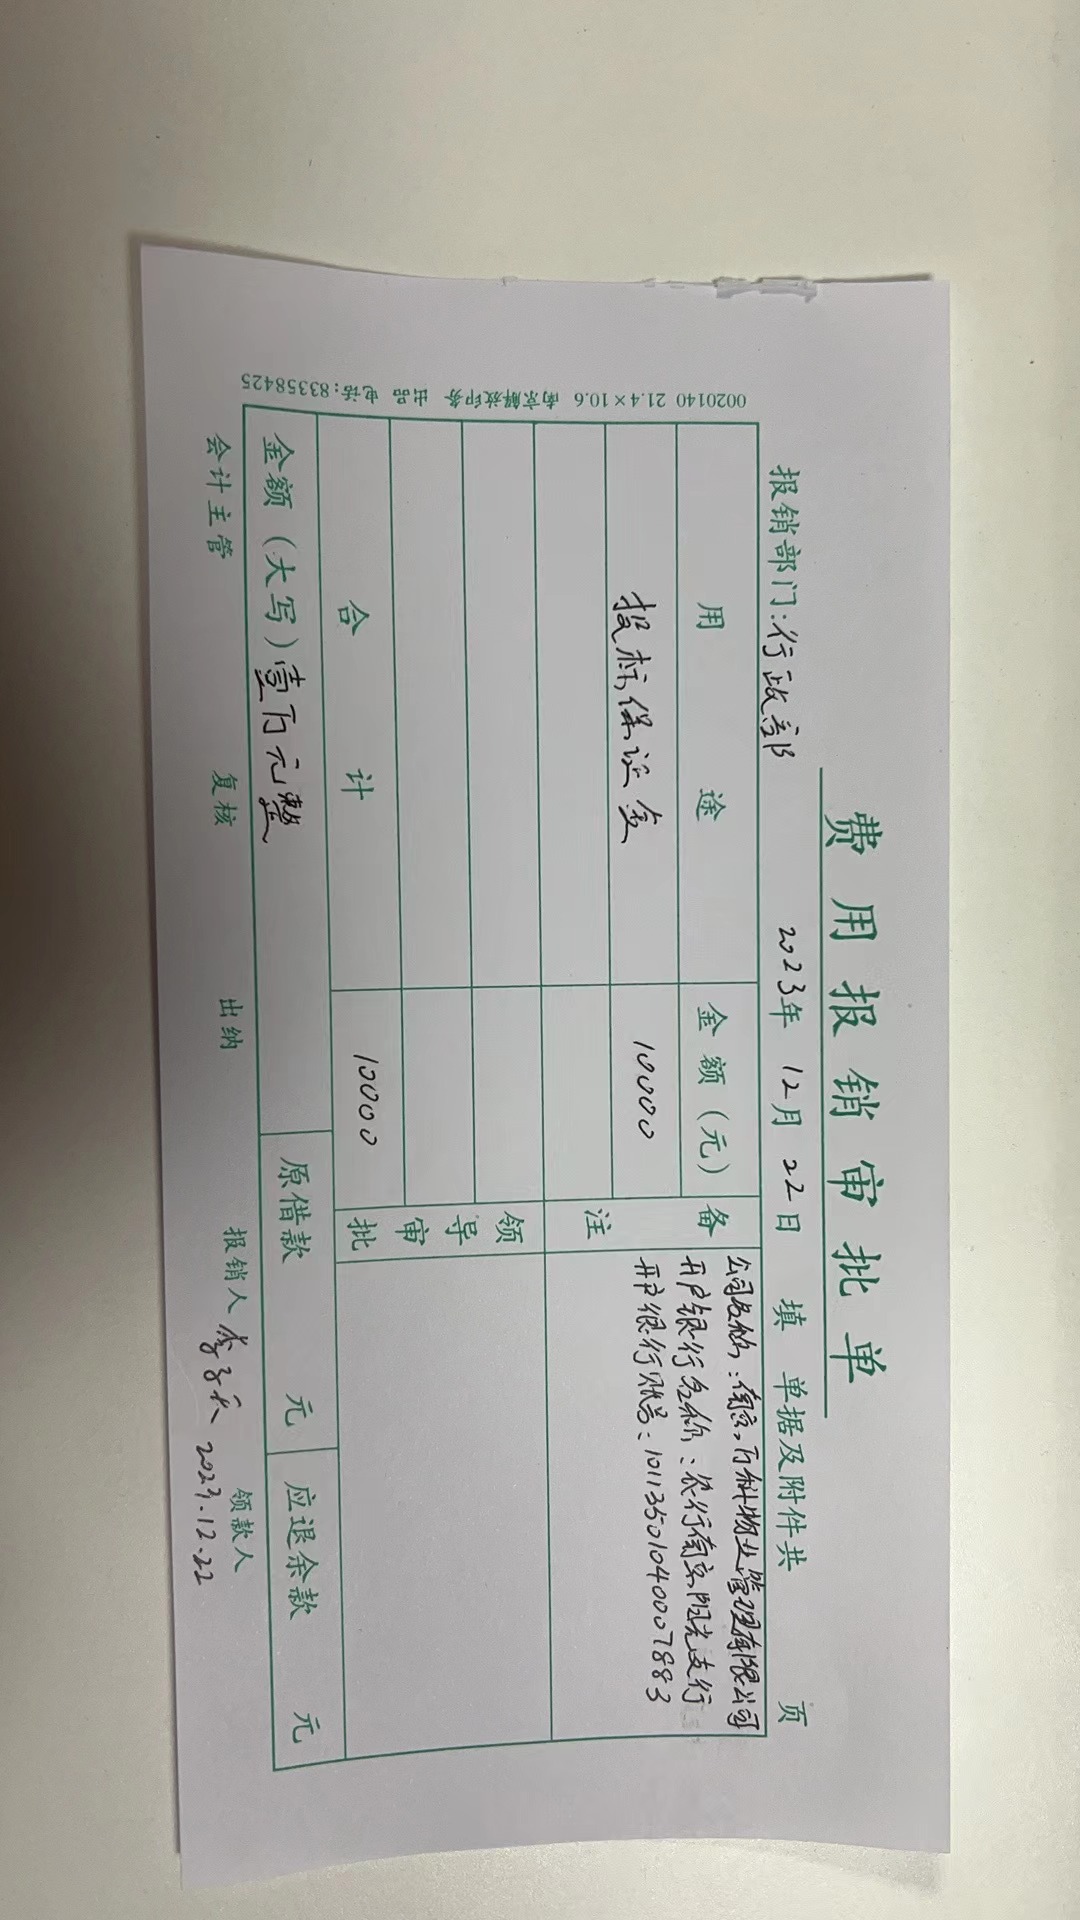 费用报销审批单
报销部门：行政部 2023年 12月 22日 填 单据及附件共 页
用途 金额（元） 备注
投标保证金 10000
公司名称：南京万科物业管理有限公司
开户银行名称：农行南京阳光支行
开户银行账号：10113501040007883
合计 10000
领导审批
金额（大写）壹万元整 原借款 元 应退余款 元
会计主管 复核 出纳 报销人 领款人
2023.12.22
0020140 21.4×10.6 南京解放印务 出品 电话：83358425